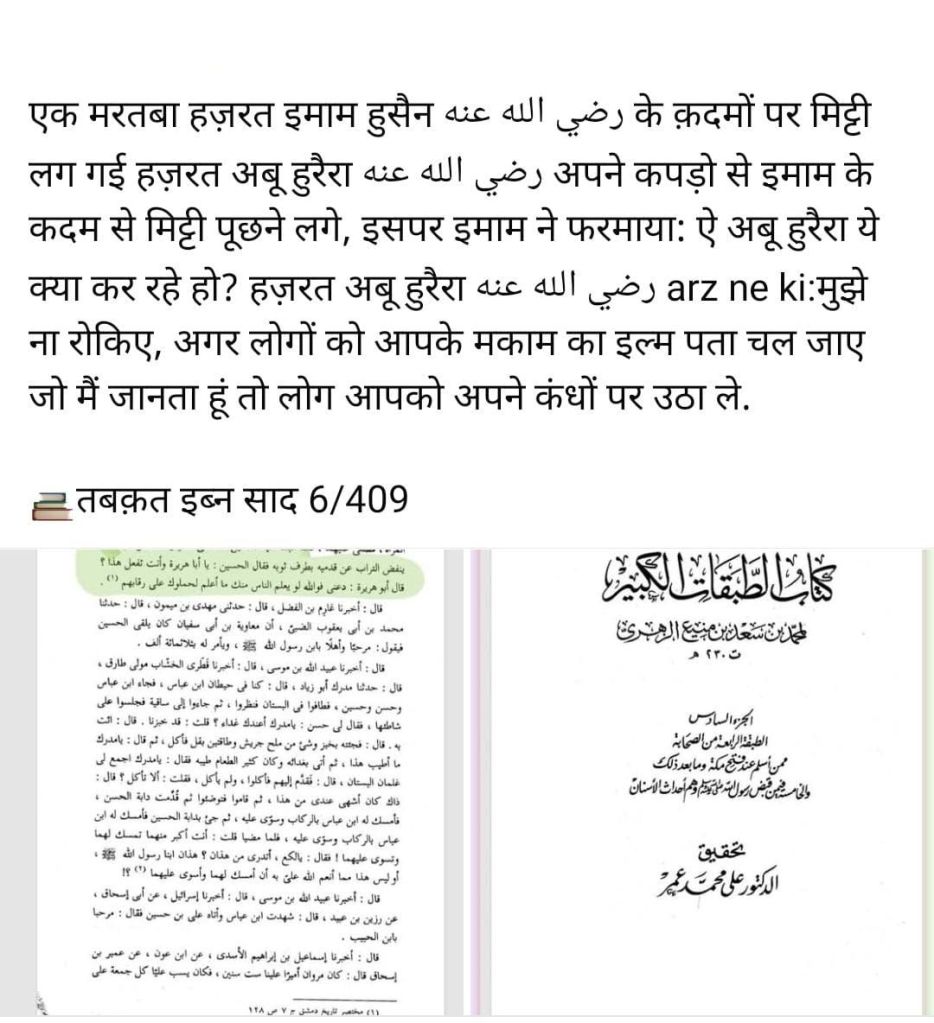 एक मरतबा हज़रत इमाम हुसैन رضي الله عنه के क़दमों पर मिट्टी
लग गई हज़रत अबू हुरैरा رضي الله عنه अपने कपड़ो से इमाम के
कदम से मिट्टी पूछने लगे, इसपर इमाम ने फरमाया: ऐ अबू हुरैरा ये
क्या कर रहे हो? हज़रत अबू हुरैरा رضي الله عنه arz ne ki:मुझे
ना रोकिए, अगर लोगों को आपके मकाम का इल्म पता चल जाए
जो मैं जानता हूं तो लोग आपको अपने कंधों पर उठा ले.
तबक़त इब्न साद 6/409
ينفض التراب عن قدميه بطرف ثوبه فقال الحسين : يا أبا هريرة وأنت تفعل هذا ؟
قال أبو هريرة : دعنى فوالله لو يعلم الناس منك ما أعلم لحملوك على رقابهم (١) .
قال : أخبرنا عارم بن الفضل ، قال : حدثنى مهدى بن ميمون ، قال : حدثنا
محمد بن أبى يعقوب الضبى ، أن معاوية بن أبى سفيان كان يلقى الحسين
فيقول : مرحبًا وأهلًا بابن رسول الله ﷺ ، ويأمر له بثلاثمائة ألف .
قال : أخبرنا عبيد الله بن موسى ، قال : أخبرنا قطرى الخشاب مولى طارق ،
قال : حدثنا مدرك أبو زياد ، قال : كنا فى حيطان ابن عباس ، فجاء ابن عباس
وحسن وحسين ، فطافوا فى البستان فنظروا ، ثم جاءوا إلى ساقية فجلسوا على
شاطئها ، فقال لى حسن : يامدرك أعندك غداء ؟ قلت : قد خبزنا . قال : ائت
به . قال : فجئته بخبز وشئ من ملح جريش وطاقتين بقل فأكل ، ثم قال : يامدرك
ما أطيب هذا ، ثم أتى بغدائه وكان كثير الطعام طيبه فقال : يامدرك اجمع لى
غلمان البستان ، قال : فقدّم إليهم فأكلوا ، ولم يأكل ، فقلت : ألا تأكل ؟ قال :
ذاك كان أشهى عندى من هذا ، ثم قاموا فتوضئوا ثم قُدّمت دابة الحسن ،
فأمسك له ابن عباس بالركاب وسوّى عليه ، ثم جئ بدابة الحسين فأمسك له ابن
عباس بالركاب وسوّى عليه ، فلما مضيا قلت : أنت أكبر منهما تمسك لهما
وتسوى عليهما ! فقال : يالكع ، أتدرى من هذان ؟ هذان ابنا رسول الله ﷺ ،
أو ليس هذا مما أنعم الله علىّ به أن أمسك لهما وأسوى عليهما (٢) ؟!
قال : أخبرنا عبيد الله بن موسى ، قال : أخبرنا إسرائيل ، عن أبى إسحاق ،
عن رزين بن عبيد ، قال : شهدت ابن عباس وأتاه على بن حسين فقال : مرحبا
بابن الحبيب .
قال : أخبرنا إسماعيل بن إبراهيم الأسدى ، عن ابن عون ، عن عمير بن
إسحاق قال : كان مروان أميرًا علينا ست سنين ، فكان يسب عليًا كل جمعة على
(١) مختصر تاريخ دمشق ج ٧ ص ١٢٨
كتاب الطبقات الكبير
لمحمد بن سعد بن منيع الزهرى
ت ٢٣٠ هـ
الجزء السادس
الطبقة الرابعة من الصحابة
ممن أسلم عند فتح مكة وما بعد ذلك
والخامسة فيمن قبض رسول الله ﷺ وهم أحداث الأسنان
تحقيق
الدكتور على محمد عمر